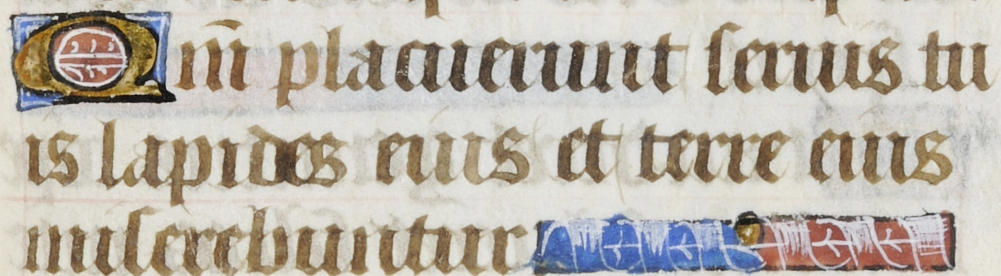 Qm̄ placuerunt seruis tu
is lapides eius et terre eius
miserebuntur